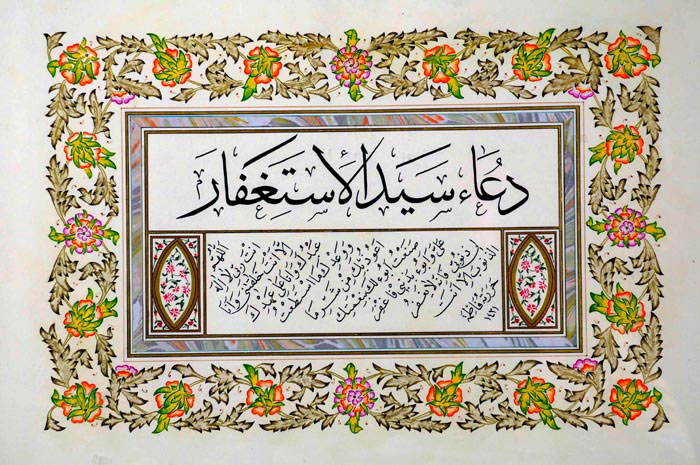 دُعَاء سَيِّد الاِسْتِغْفَار
اللهم
انت ربي لا اله
الا انت خلقتني وانا
عبدك وانا على عهدك
ووعدك ما استطعت
اعوذ بك من شر ما
صنعت ابوء لك بنعمتك
علي وابوء بذنبي فاغفر
لي ذنوبي فانه لا يغفر
الذنوب الا انت
حررته فاطمة
١٤٢١